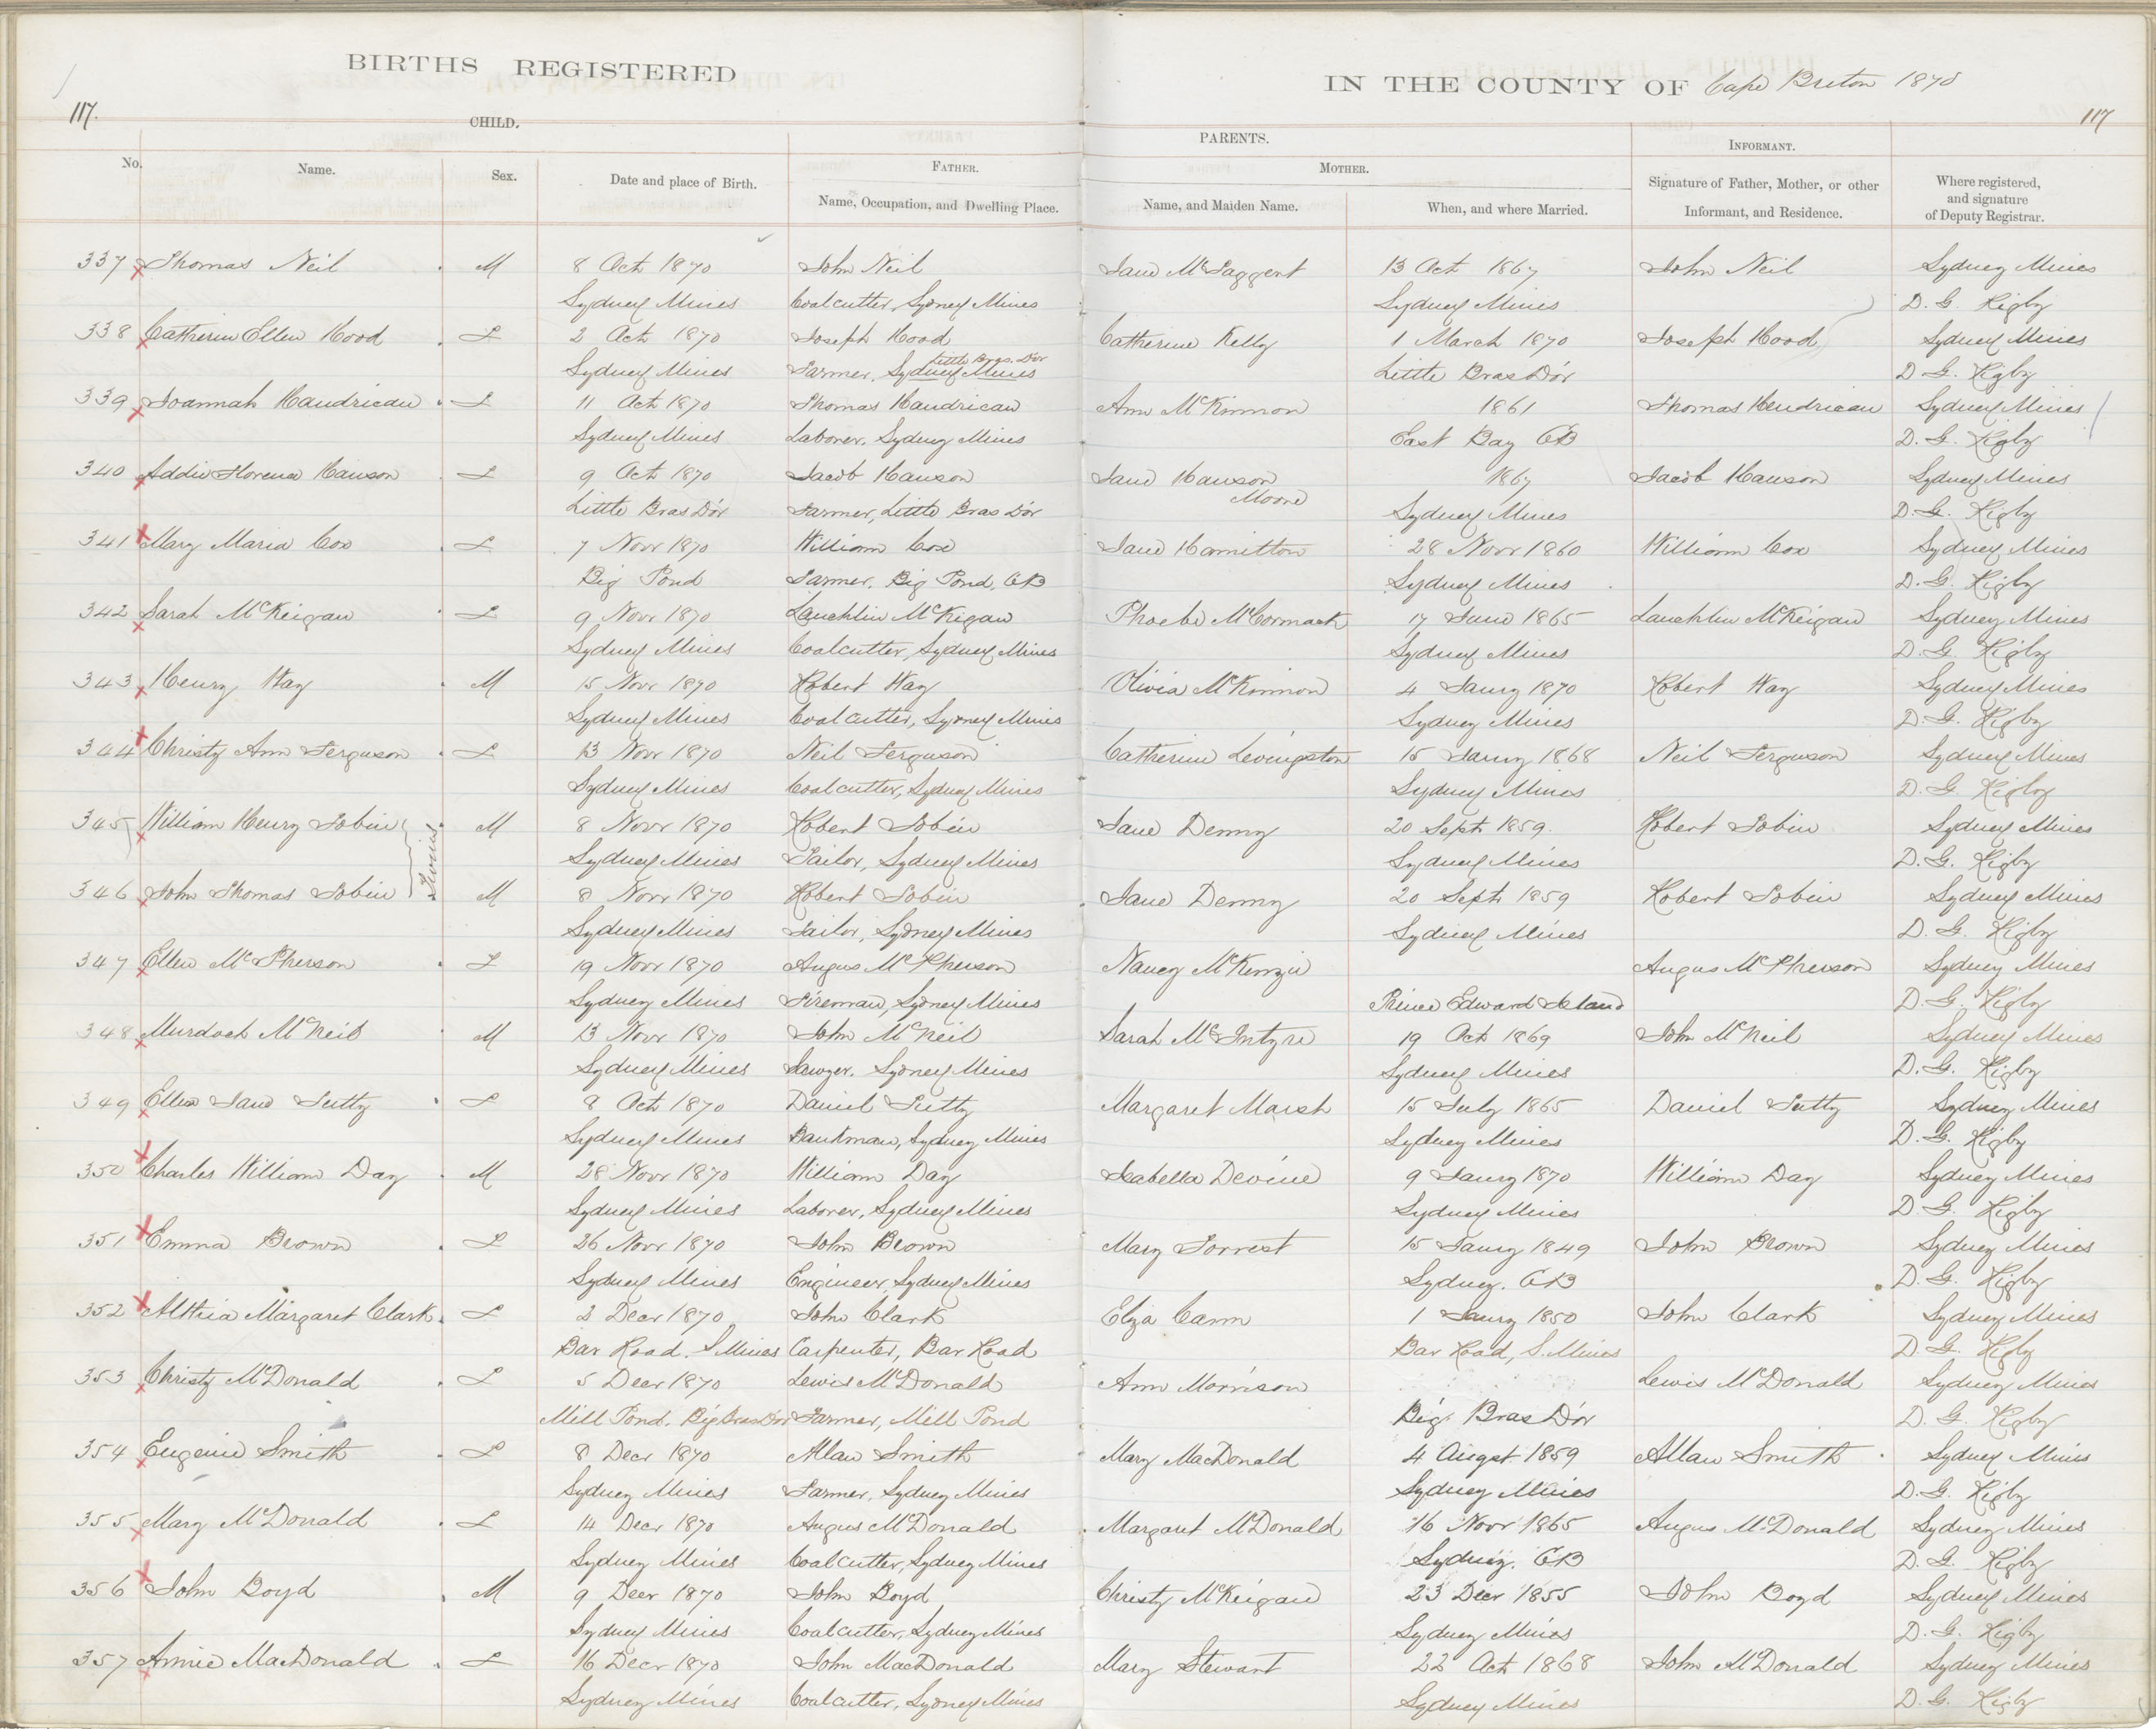 BIRTHS REGISTERED
IN THE COUNTY OF Cape Breton 1870
117. 117
CHILD.
PARENTS.
INFORMANT.
No. Name. Sex. Date and place of Birth.
FATHER.
Name, Occupation, and Dwelling Place.
MOTHER.
Name, and Maiden Name. When, and where Married.
Signature of Father, Mother, or other
Informant, and Residence.
Where registered,
and signature
of Deputy Registrar.
337 Thomas Neil M 8 Oct 1870 John Neil Jane McTaggert 13 Oct 1867 John Neil Sydney Mines
Sydney Mines Coalcutter, Sydney Mines Sydney Mines D. G. Rigby
338 Catherine Ellen Hood F 2 Oct 1870 Joseph Hood Catherine Kelly 1 March 1870 Joseph Hood Sydney Mines
Little Bras Dor
Sydney Mines Farmer, Sydney Mines Little Bras D'or D G. Rigby
339 Joannah Handrican F 11 Oct 1870 Thomas Handrican Ann McKinnon 1861 Thomas Hendrican Sydney Mines
Sydney Mines Laborer, Sydney Mines East Bay CB D. G. Rigby
340 Addie Florence Hanson F 9 Oct 1870 Jacob Hanson Jane Hanson 1867 Jacob Hanson Sydney Mines
Moore
Little Bras D'or Farmer, Little Bras D'or Sydney Mines D. G. Rigby
341 Mary Maria Cox F 7 Novr 1870 William Cox Jane Hamilton 28 Novr 1860 William Cox Sydney Mines
Big Pond Farmer, Big Pond, CB Sydney Mines D. G. Rigby
342 Sarah McKeigan F 9 Novr 1870 Lauchlin McKigan Phoebe McCormack 17 June 1865 Lauchlin McKeigan Sydney Mines
Sydney Mines Coalcutter, Sydney Mines Sydney Mines D. G. Rigby
343 Henry Way M 15 Novr 1870 Robert Way Olivia McKinnon 4 Jany 1870 Robert Way Sydney Mines
Sydney Mines Coalcutter, Sydney Mines Sydney Mines D. G. Rigby
344 Christy Ann Ferguson F 13 Novr 1870 Neil Ferguson Catherine Levingston 15 Jany 1868 Neil Ferguson Sydney Mines
Sydney Mines Coalcutter, Sydney Mines Sydney Mines D. G. Rigby
345 William Henry Tobin M 8 Novr 1870 Robert Tobin Jane Denny 20 Sept 1859. Robert Tobin Sydney Mines
Twins
Sydney Mines Tailor, Sydney Mines Sydney Mines D. G. Rigby
346 John Thomas Tobin M 8 Novr 1870 Robert Tobin Jane Denny 20 Sept 1859 Robert Tobin Sydney Mines
Sydney Mines Tailor, Sydney Mines Sydney Mines D. G. Rigby
347 Ellen McPherson F 19 Novr 1870 Angus McPherson Nancy McKenzie Angus McPherson Sydney Mines
Sydney Mines Fireman, Sydney Mines Prince Edward Island D. G. Rigby
348 Murdoch McNeil M 13 Novr 1870 John McNeil Sarah McIntyre 19 Oct 1869 John McNeil Sydney Mines
Sydney Mines Sawyer, Sydney Mines Sydney Mines D. G. Rigby
349 Ellen Jane F 8 Oct 1870 Daniel Margaret Marsh 15 July 1865 Daniel Sydney Mines
Sydney Mines Sydney Mines Sydney Mines D. G. Rigby
350 Charles William Day M 28 Novr 1870 William Day Isabella Devine 9 Jany 1870 William Day Sydney Mines
Sydney Mines Laborer, Sydney Mines Sydney Mines D. G. Rigby
351 Emma Brown F 26 Novr 1870 John Brown Mary Forrest 15 Jany 1849 John Brown Sydney Mines
Sydney Mines Engineer, Sydney Mines Sydney. CB D. G. Rigby
352 Margaret Clark F 2 Decr 1870 John Clark Eliza Cann 1 Jany 1850 John Clark Sydney Mines
Bar Road. S Mines Carpenter, Bar Road Bar Road, S. Mines D G. Rigby
353 Christy McDonald F 5 Decr 1870 Lewis McDonald Ann Morrison Lewis McDonald Sydney Mines
Mill Pond. Big Bras D'or Farmer, Mill Pond Big Bras D'or D. G. Rigby
354 Eugenie Smith F 8 Decr 1870 Allan Smith Mary MacDonald 4 Augst 1859 Allan Smith Sydney Mines
Sydney Mines Farmer, Sydney Mines Sydney Mines D. G. Rigby
355 Mary McDonald F 14 Decr 1870 Angus McDonald Margaret McDonald 16 Novr 1865 Angus McDonald Sydney Mines
Sydney Mines Coalcutter, Sydney Mines Sydney. CB D. G. Rigby
356 John Boyd M 9 Decr 1870 John Boyd Christy McKeigan 23 Decr 1855 John Boyd Sydney Mines
Sydney Mines Coalcutter, Sydney Mines Sydney Mines D. G. Rigby
357 Annie MacDonald F 16 Decr 1870 John MacDonald Mary Stewart 22 Oct 1868 John McDonald Sydney Mines
Sydney Mines Coalcutter, Sydney Mines Sydney Mines D. G. Rigby